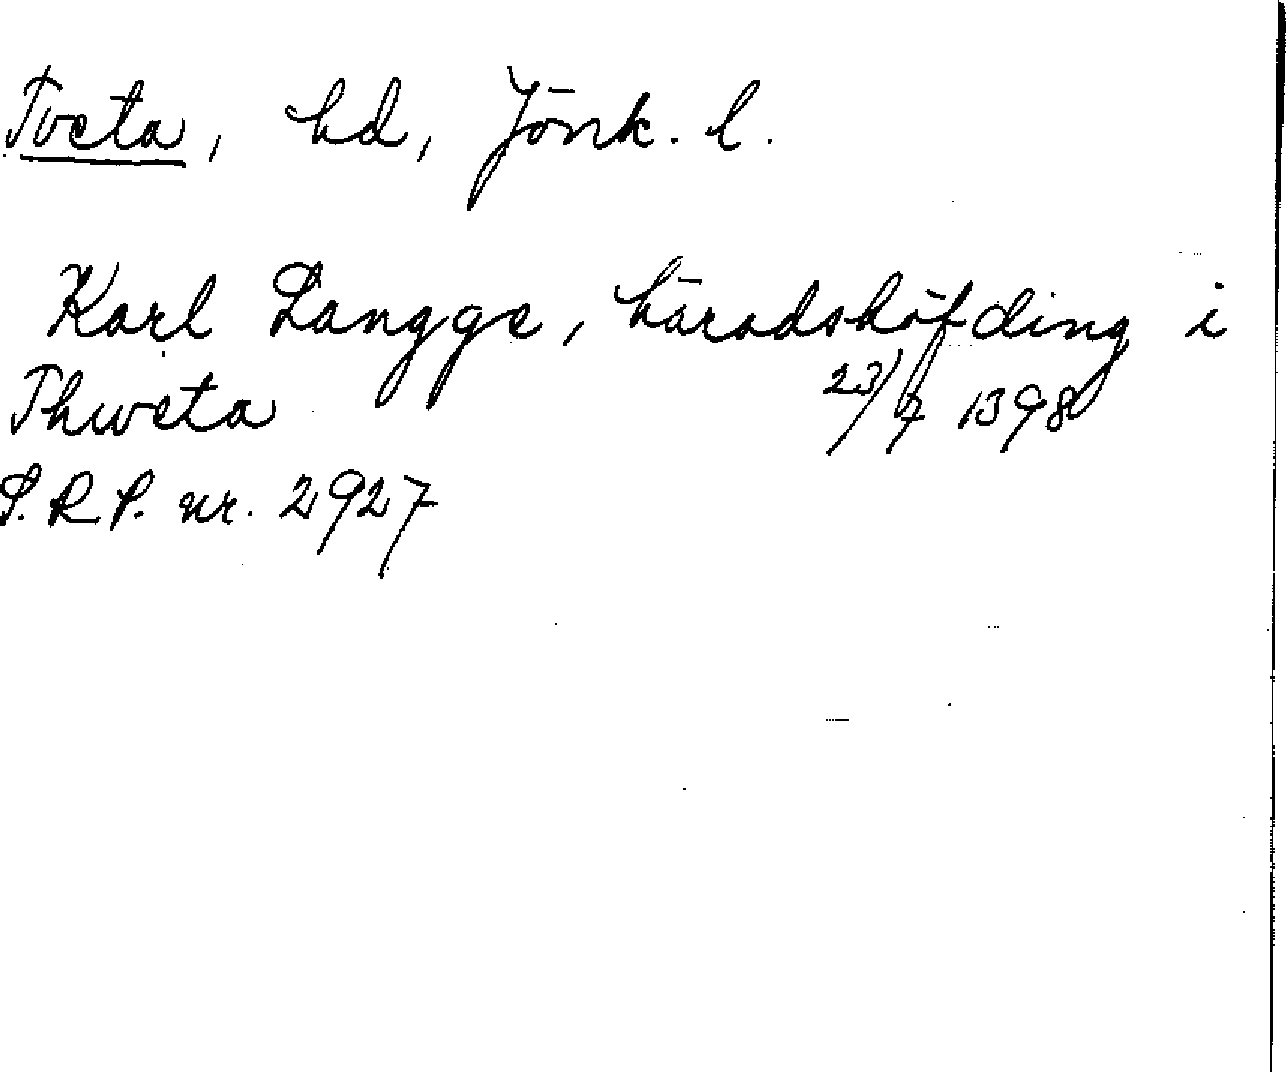 Tveta, hd, Jönk. l.
Karl Langge, häradshöfding i
Thweta 23/7 1398
S.R.P. nr. 2927